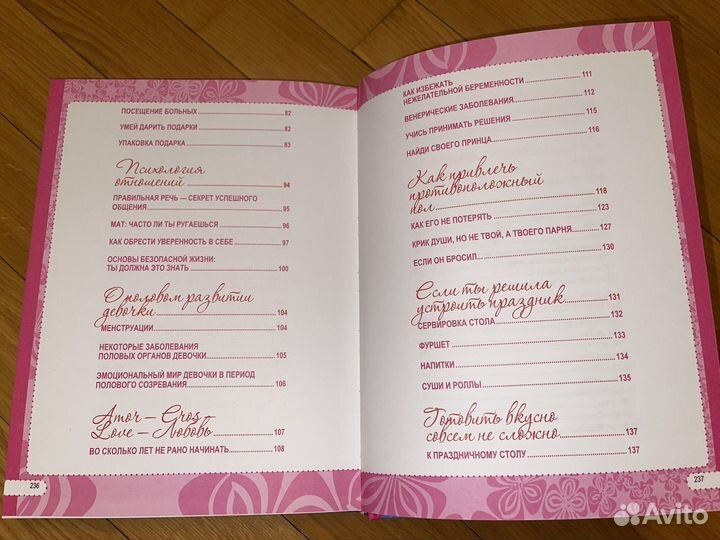 ПОСЕЩЕНИЕ БОЛЬНЫХ 82
УМЕЙ ДАРИТЬ ПОДАРКИ 82
УПАКОВКА ПОДАРКА 83
Психология
отношений 94
ПРАВИЛЬНАЯ РЕЧЬ — СЕКРЕТ УСПЕШНОГО
ОБЩЕНИЯ 95
МАТ: ЧАСТО ЛИ ТЫ РУГАЕШЬСЯ 96
КАК ОБРЕСТИ УВЕРЕННОСТЬ В СЕБЕ 97
ОСНОВЫ БЕЗОПАСНОЙ ЖИЗНИ:
ТЫ ДОЛЖНА ЭТО ЗНАТЬ 100
О половом развитии
девочки 104
МЕНСТРУАЦИИ 104
НЕКОТОРЫЕ ЗАБОЛЕВАНИЯ
ПОЛОВЫХ ОРГАНОВ ДЕВОЧКИ 105
ЭМОЦИОНАЛЬНЫЙ МИР ДЕВОЧКИ В ПЕРИОД
ПОЛОВОГО СОЗРЕВАНИЯ 106
Amor — Eros
Love — Любовь 107
ВО СКОЛЬКО ЛЕТ НЕ РАНО НАЧИНАТЬ 108
236
КАК ИЗБЕЖАТЬ
НЕЖЕЛАТЕЛЬНОЙ БЕРЕМЕННОСТИ 111
ВЕНЕРИЧЕСКИЕ ЗАБОЛЕВАНИЯ 112
УЧИСЬ ПРИНИМАТЬ РЕШЕНИЯ 115
НАЙДИ СВОЕГО ПРИНЦА 116
Как привлечь
противоположный
пол 118
КАК ЕГО НЕ ПОТЕРЯТЬ 123
КРИК ДУШИ, НО НЕ ТВОЙ, А ТВОЕГО ПАРНЯ 127
ЕСЛИ ОН БРОСИЛ... 130
Если ты решила
устроить праздник 131
СЕРВИРОВКА СТОЛА 132
ФУРШЕТ 133
НАПИТКИ 134
СУШИ И РОЛЛЫ 135
Готовить вкусно
совсем не сложно 137
К ПРАЗДНИЧНОМУ СТОЛУ 137
237
Avito